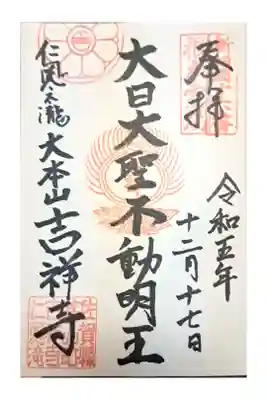 奉拝
令和五年
十二月十七日
大日大聖不動明王
大本山吉祥寺